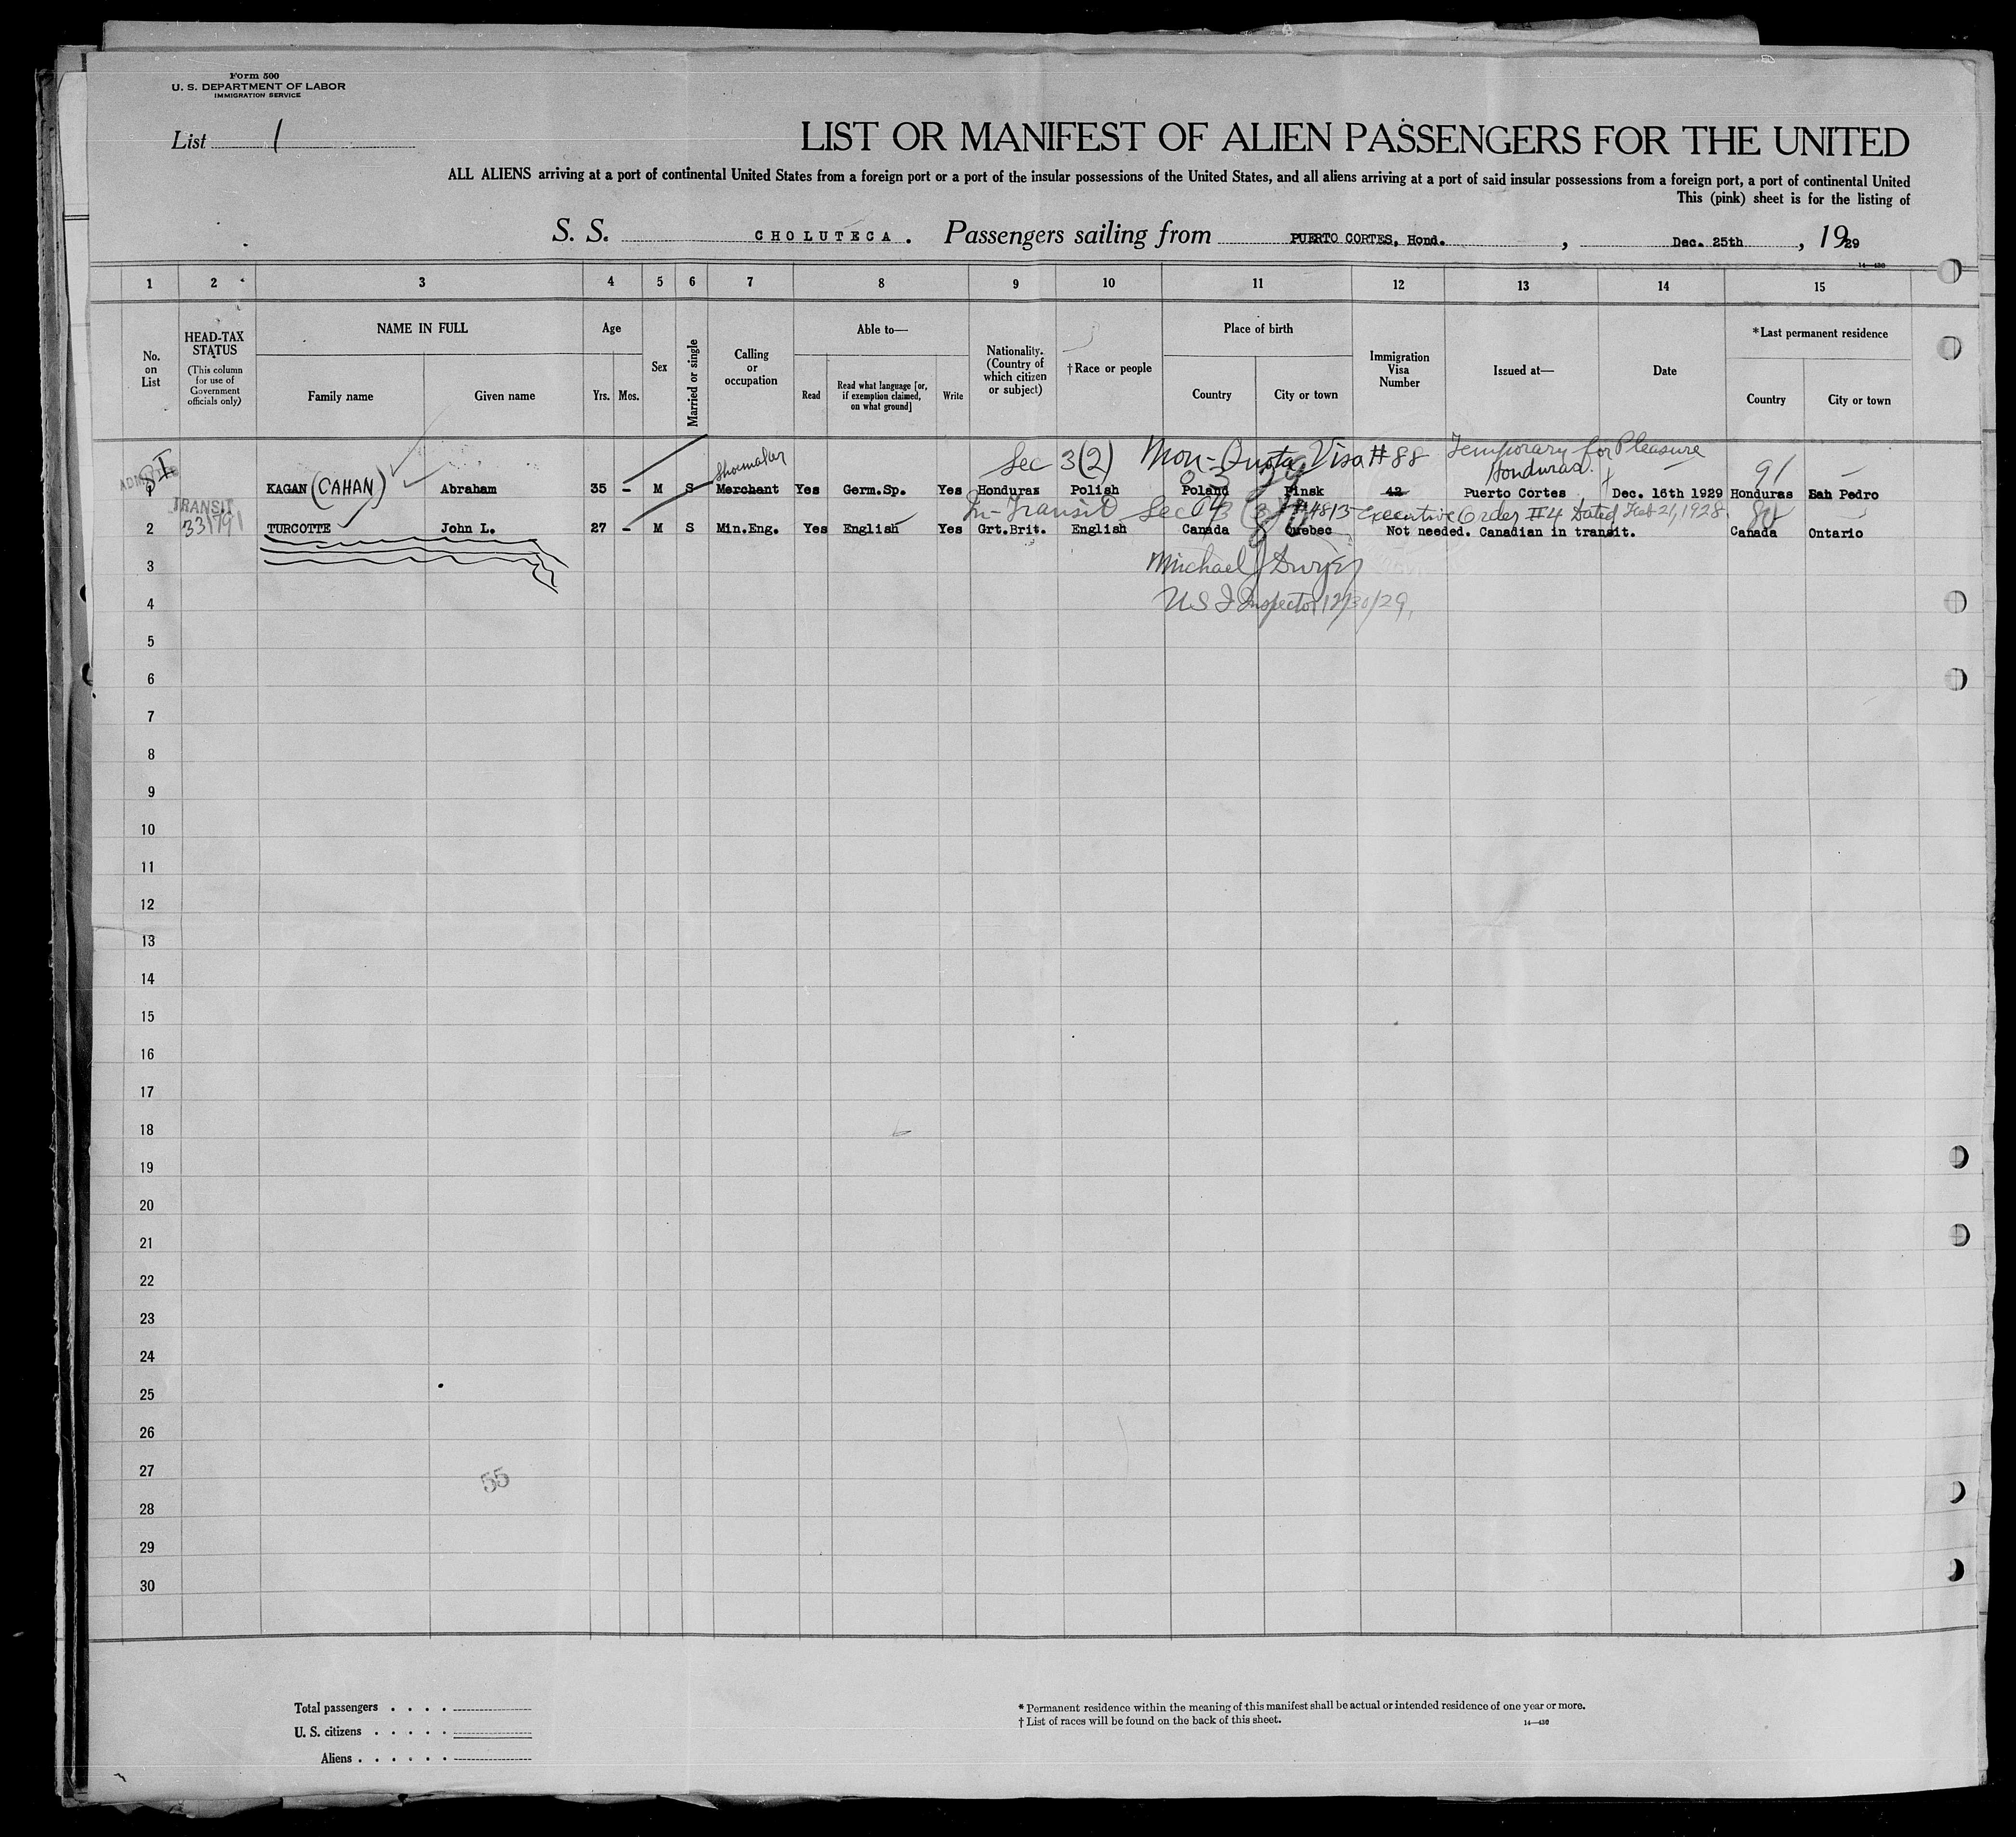 Form 500
U. S. DEPARTMENT OF LABOR
IMMIGRATION SERVICE
List 1
LIST OR MANIFEST OF ALIEN PASSENGERS FOR THE UNITED
ALL ALIENS arriving at a port of continental United States from a foreign port or a port of the insular possessions of the United States, and all aliens arriving at a port of said insular possessions from a foreign port, a port of continental United
This (pink) sheet is for the listing of
S. S. CHOLUTECA. Passengers sailing from PUERTO CORTES, Hond. , Dec. 25th , 1929
14—430
1 2 3 4 5 6 7 8 9 10 11 12 13 14 15
No. on List
HEAD-TAX STATUS
(This column for use of Government officials only)
NAME IN FULL
Family name Given name
Age
Yrs. Mos.
Sex
Married or single
Calling or occupation
Able to—
Read Read what language [or, if exemption claimed, on what ground] Write
Nationality. (Country of which citizen or subject)
†Race or people
Place of birth
Country City or town
Immigration Visa Number
Issued at—
Date
*Last permanent residence
Country City or town
Sec 3(2) Non-Quota Visa #88 Temporary for Pleasure
Shoemaker Honduras. 91
ADMITTED
1 KAGAN (CAHAN) Abraham 35 - M S Merchant Yes Germ.Sp. Yes Honduras Polish Poland Pinsk 42 Puerto Cortes Dec. 16th 1929 Honduras San Pedro
TRANSIT
33/791
In-Transit Sec 3 (3) #4813 Executive Order #4 Dated Feb 21, 1928
2 TURCOTTE John L. 27 - M S Min.Eng. Yes English Yes Grt.Brit. English Canada Quebec Not needed. Canadian in transit. Canada Ontario
3
Michael J Dwyer
4
U S I Inspector 12/30/29.
5
6
7
8
9
10
11
12
13
14
15
16
17
18
19
20
21
22
23
24
25
26
27
55
28
29
30
Total passengers . . . .
U. S. citizens . . . . .
Aliens . . . . . .
* Permanent residence within the meaning of this manifest shall be actual or intended residence of one year or more.
† List of races will be found on the back of this sheet.
14—430